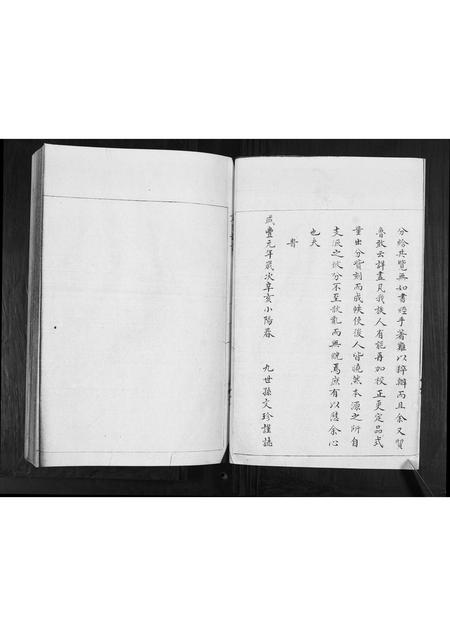 分給共覽無如書經手著難以辭辦而且余又質
魯敢云詳盡凡我族人有能再加校正更定品式
量出分貲刻而成帙使後人皆曉然本源之所自
支派之攸分不至散亂而無統焉庶有以慰余心
也夫
旹
咸豐元年歲次辛亥小陽春 九世孫文珍謹誌